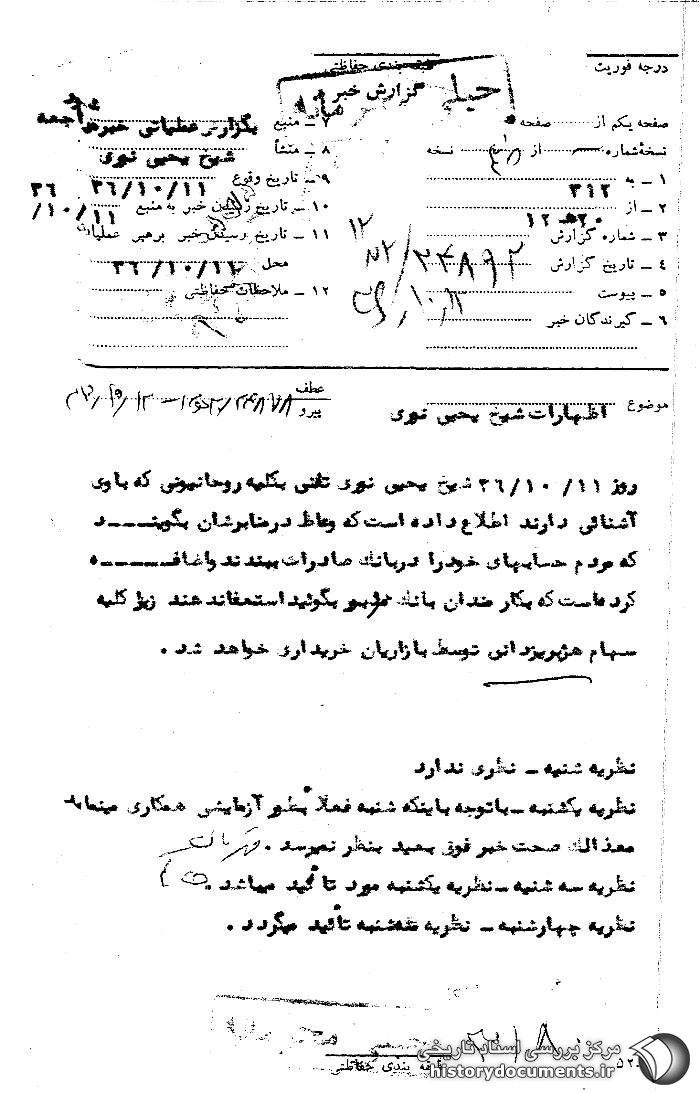 درجه فوریت
طبقه بندی حفاظتی
گزارش خبر
خیلی
صفحه یکم از صفحه
نسخهٔ شماره از نسخه
۱ ـ به ۳۱۲
۲ ـ از ۲۰ ه‍ ۱۲
۳ ـ شماره گزارش
۴ ـ تاریخ گزارش
۵ ـ پیوست
۶ ـ گیرندگان خبر
۷ ـ منبع بگزارش عملیاتی خبر مراجعه شود
۸ ـ منشأ شیخ یحیی نوری
۹ ـ تاریخ وقوع ۳۶/۱۰/۱۱
۱۰ ـ تاریخ رسیدن خبر به منبع ۳۶/۱۰/۱۱
۱۱ ـ تاریخ رسیدن خبر برهبر عملیات
محل ۳۶/۱۰/۱۱
۱۲ ـ ملاحظات حفاظتی
موضوع اظهارات شیخ یحیی نوری
عطف
پیرو
روز ۳۶/۱۰/۱۱ شیخ یحیی نوری تلفنی بکلیه روحانیونی که با وی
آشنائی دارند اطلاع داده است که وعاظ در منابرشان بگویند
که مردم حسابهای خود را در بانک صادرات ببندند و اضافه
کرده است که بکارمندان بانک مزبور بگوئید استعفا ندهند زیرا کلیه
سهام هژبر یزدانی توسط بازاریان خریداری خواهد شد .
نظریه شنبه ـ نظری ندارد
نظریه یکشنبه ـ با توجه باینکه شنبه فعلا بطور آزمایشی همکاری مینماید
معذالک صحت خبر فوق بعید بنظر نمیرسد .
نظریه سه شنبه ـ نظریه یکشنبه مورد تائید میباشد .
نظریه چهارشنبه ـ نظریه سه‌شنبه تائید میگردد .
طبقه بندی حفاظتی
مرکز بررسی اسناد تاریخی
historydocuments.ir